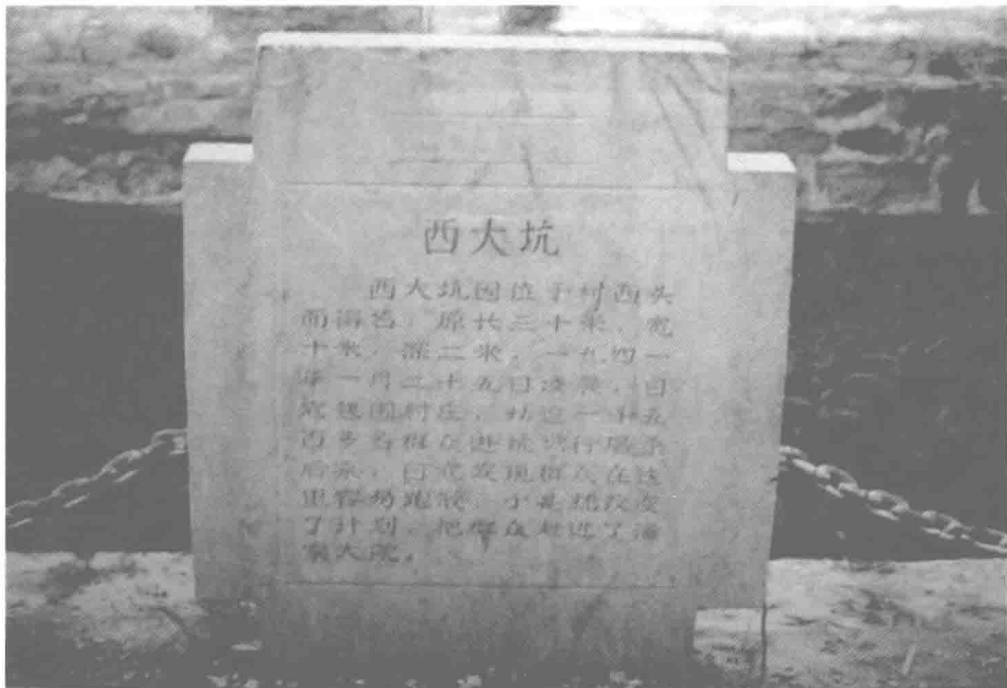 西大坑
西大坑因位于村西头
而得名，原长三十米，宽
十米，深二米，一九四一
年一月二十五日凌晨，日
寇包围村庄，
百多名群众进坑进行屠杀
后来，日寇发现群众在这
里容易跑散，于是就改变
了计划，把群众赶进了潘
家大院。